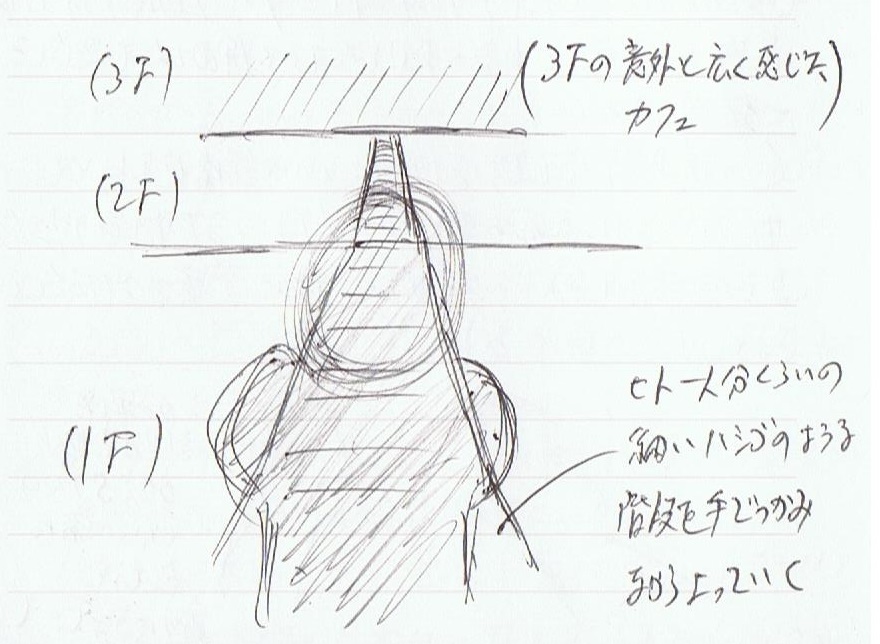 (3F)
(3Fの意外と広く感じた
カフェ)
(2F)
(1F)
ヒト一人分くらいの
細いハシゴのような
階段を手でつかみ
ながら上っていく